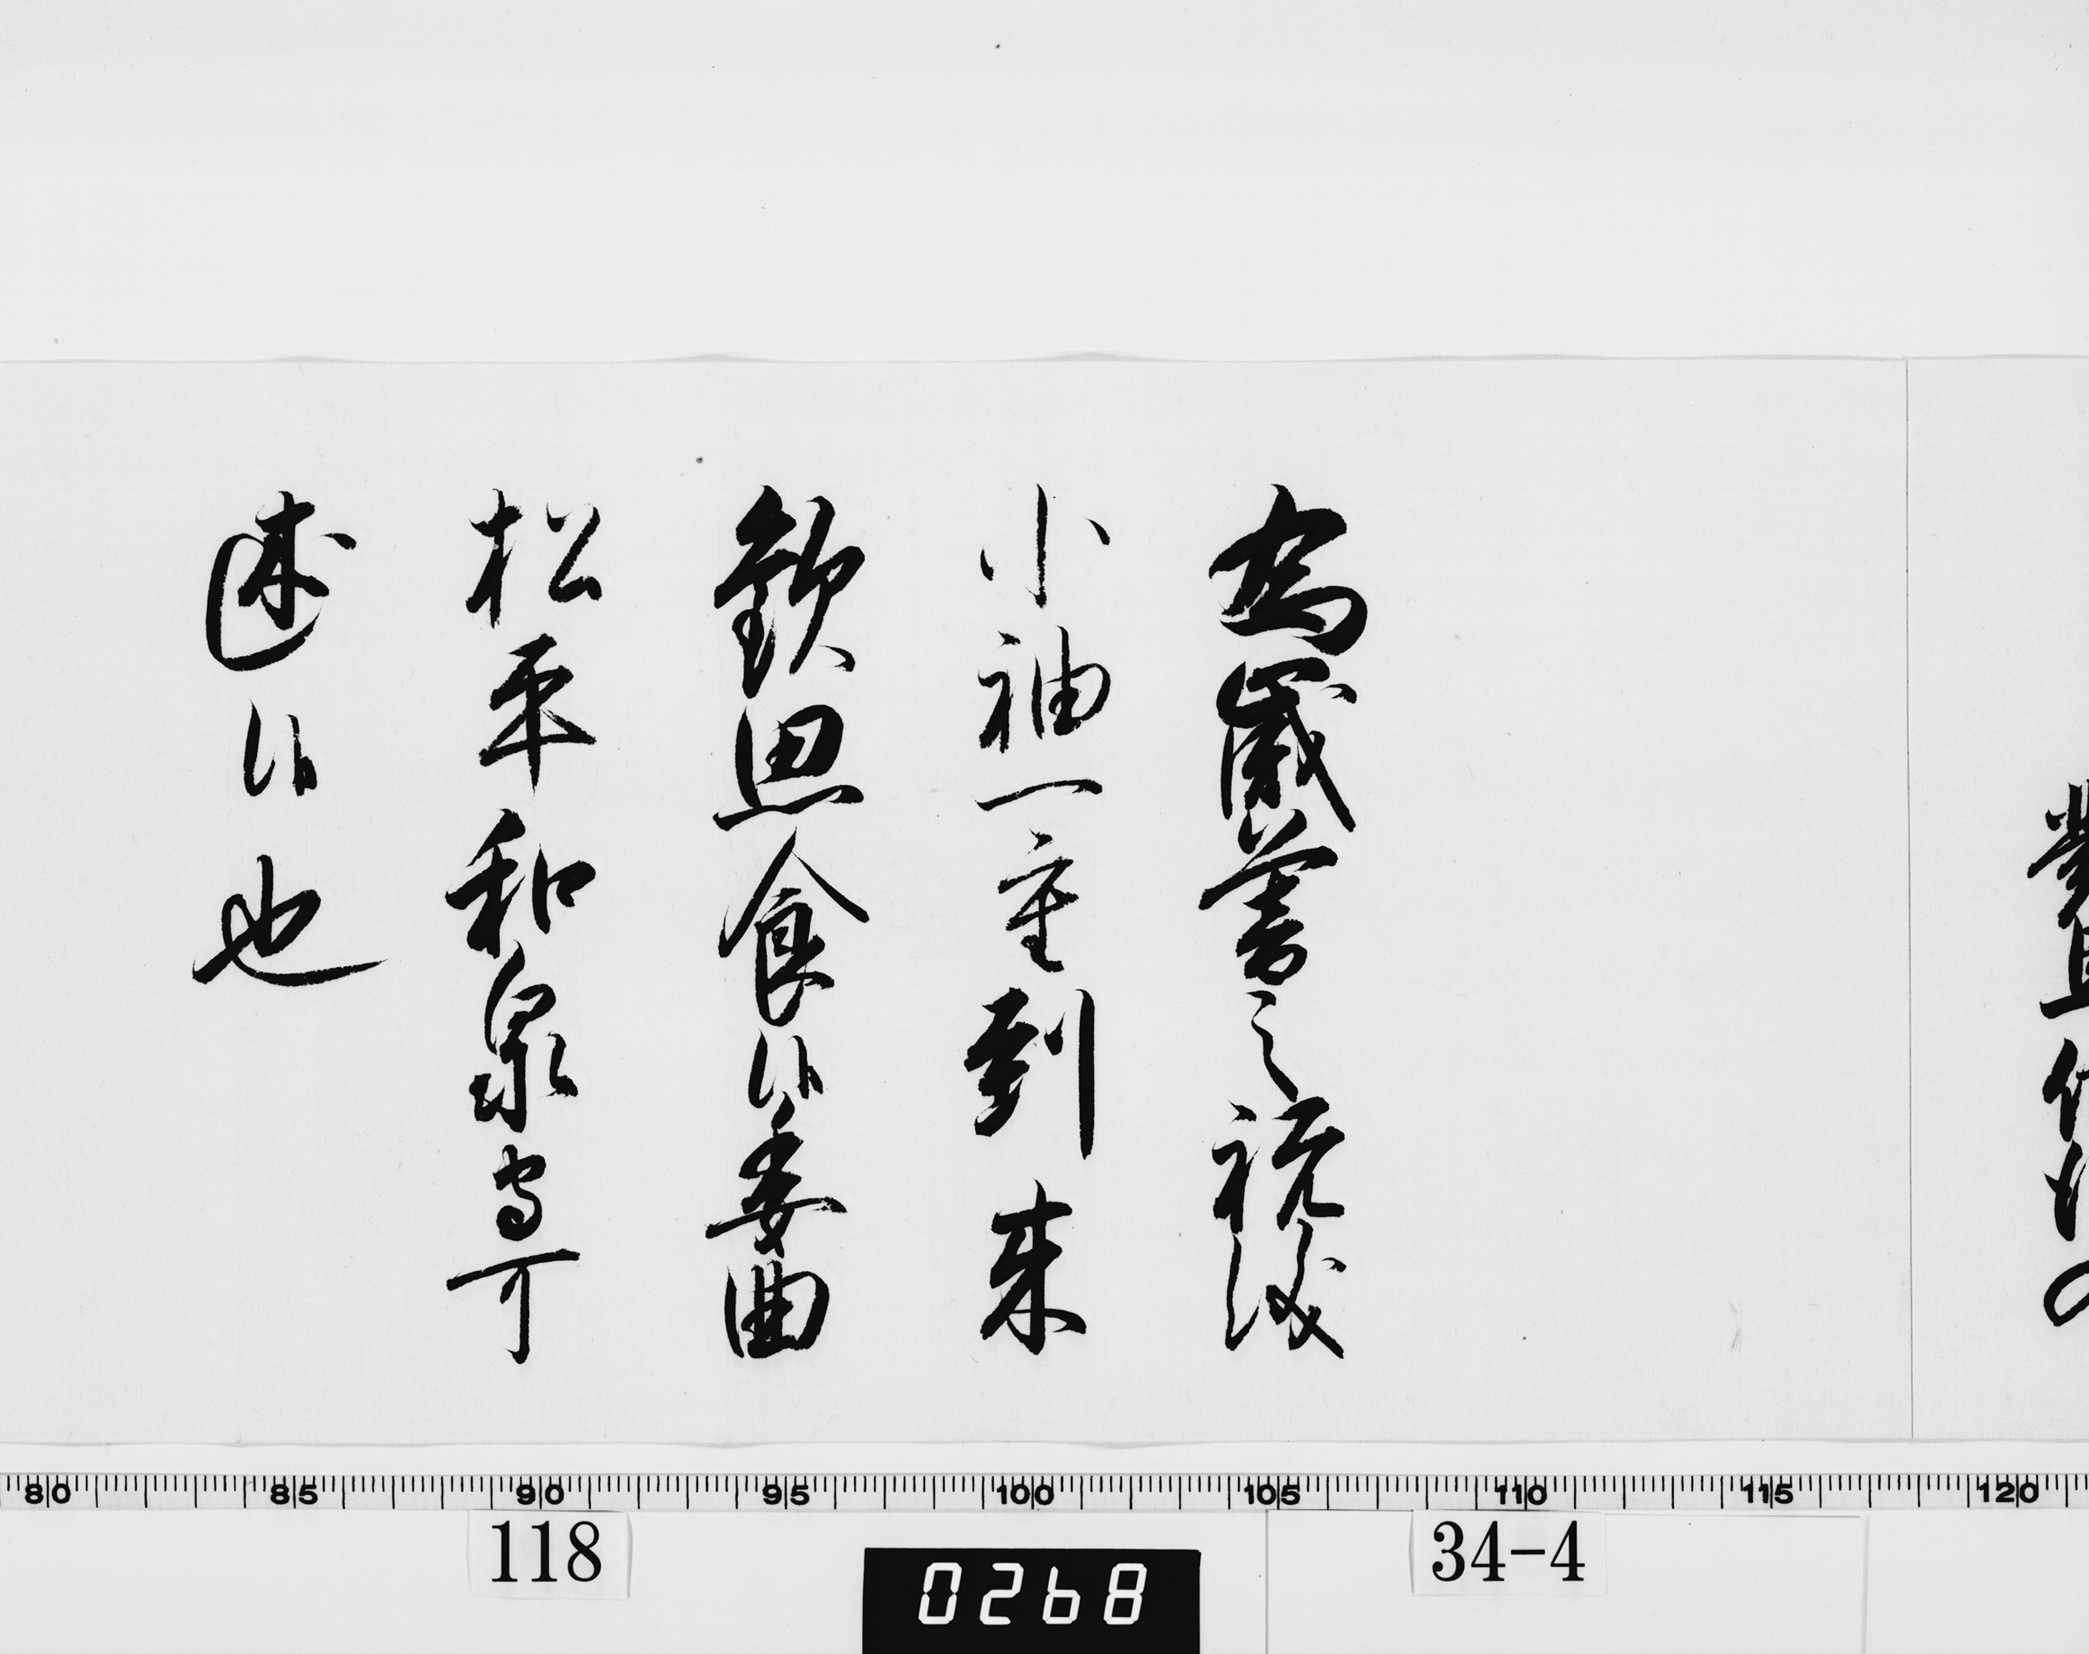 為歳暮之祝儀
小袖一重到来
歓思食候委曲
松平和泉守可
述候也
80 85 90 95 100 105 110 115 120
118
0268
34-4